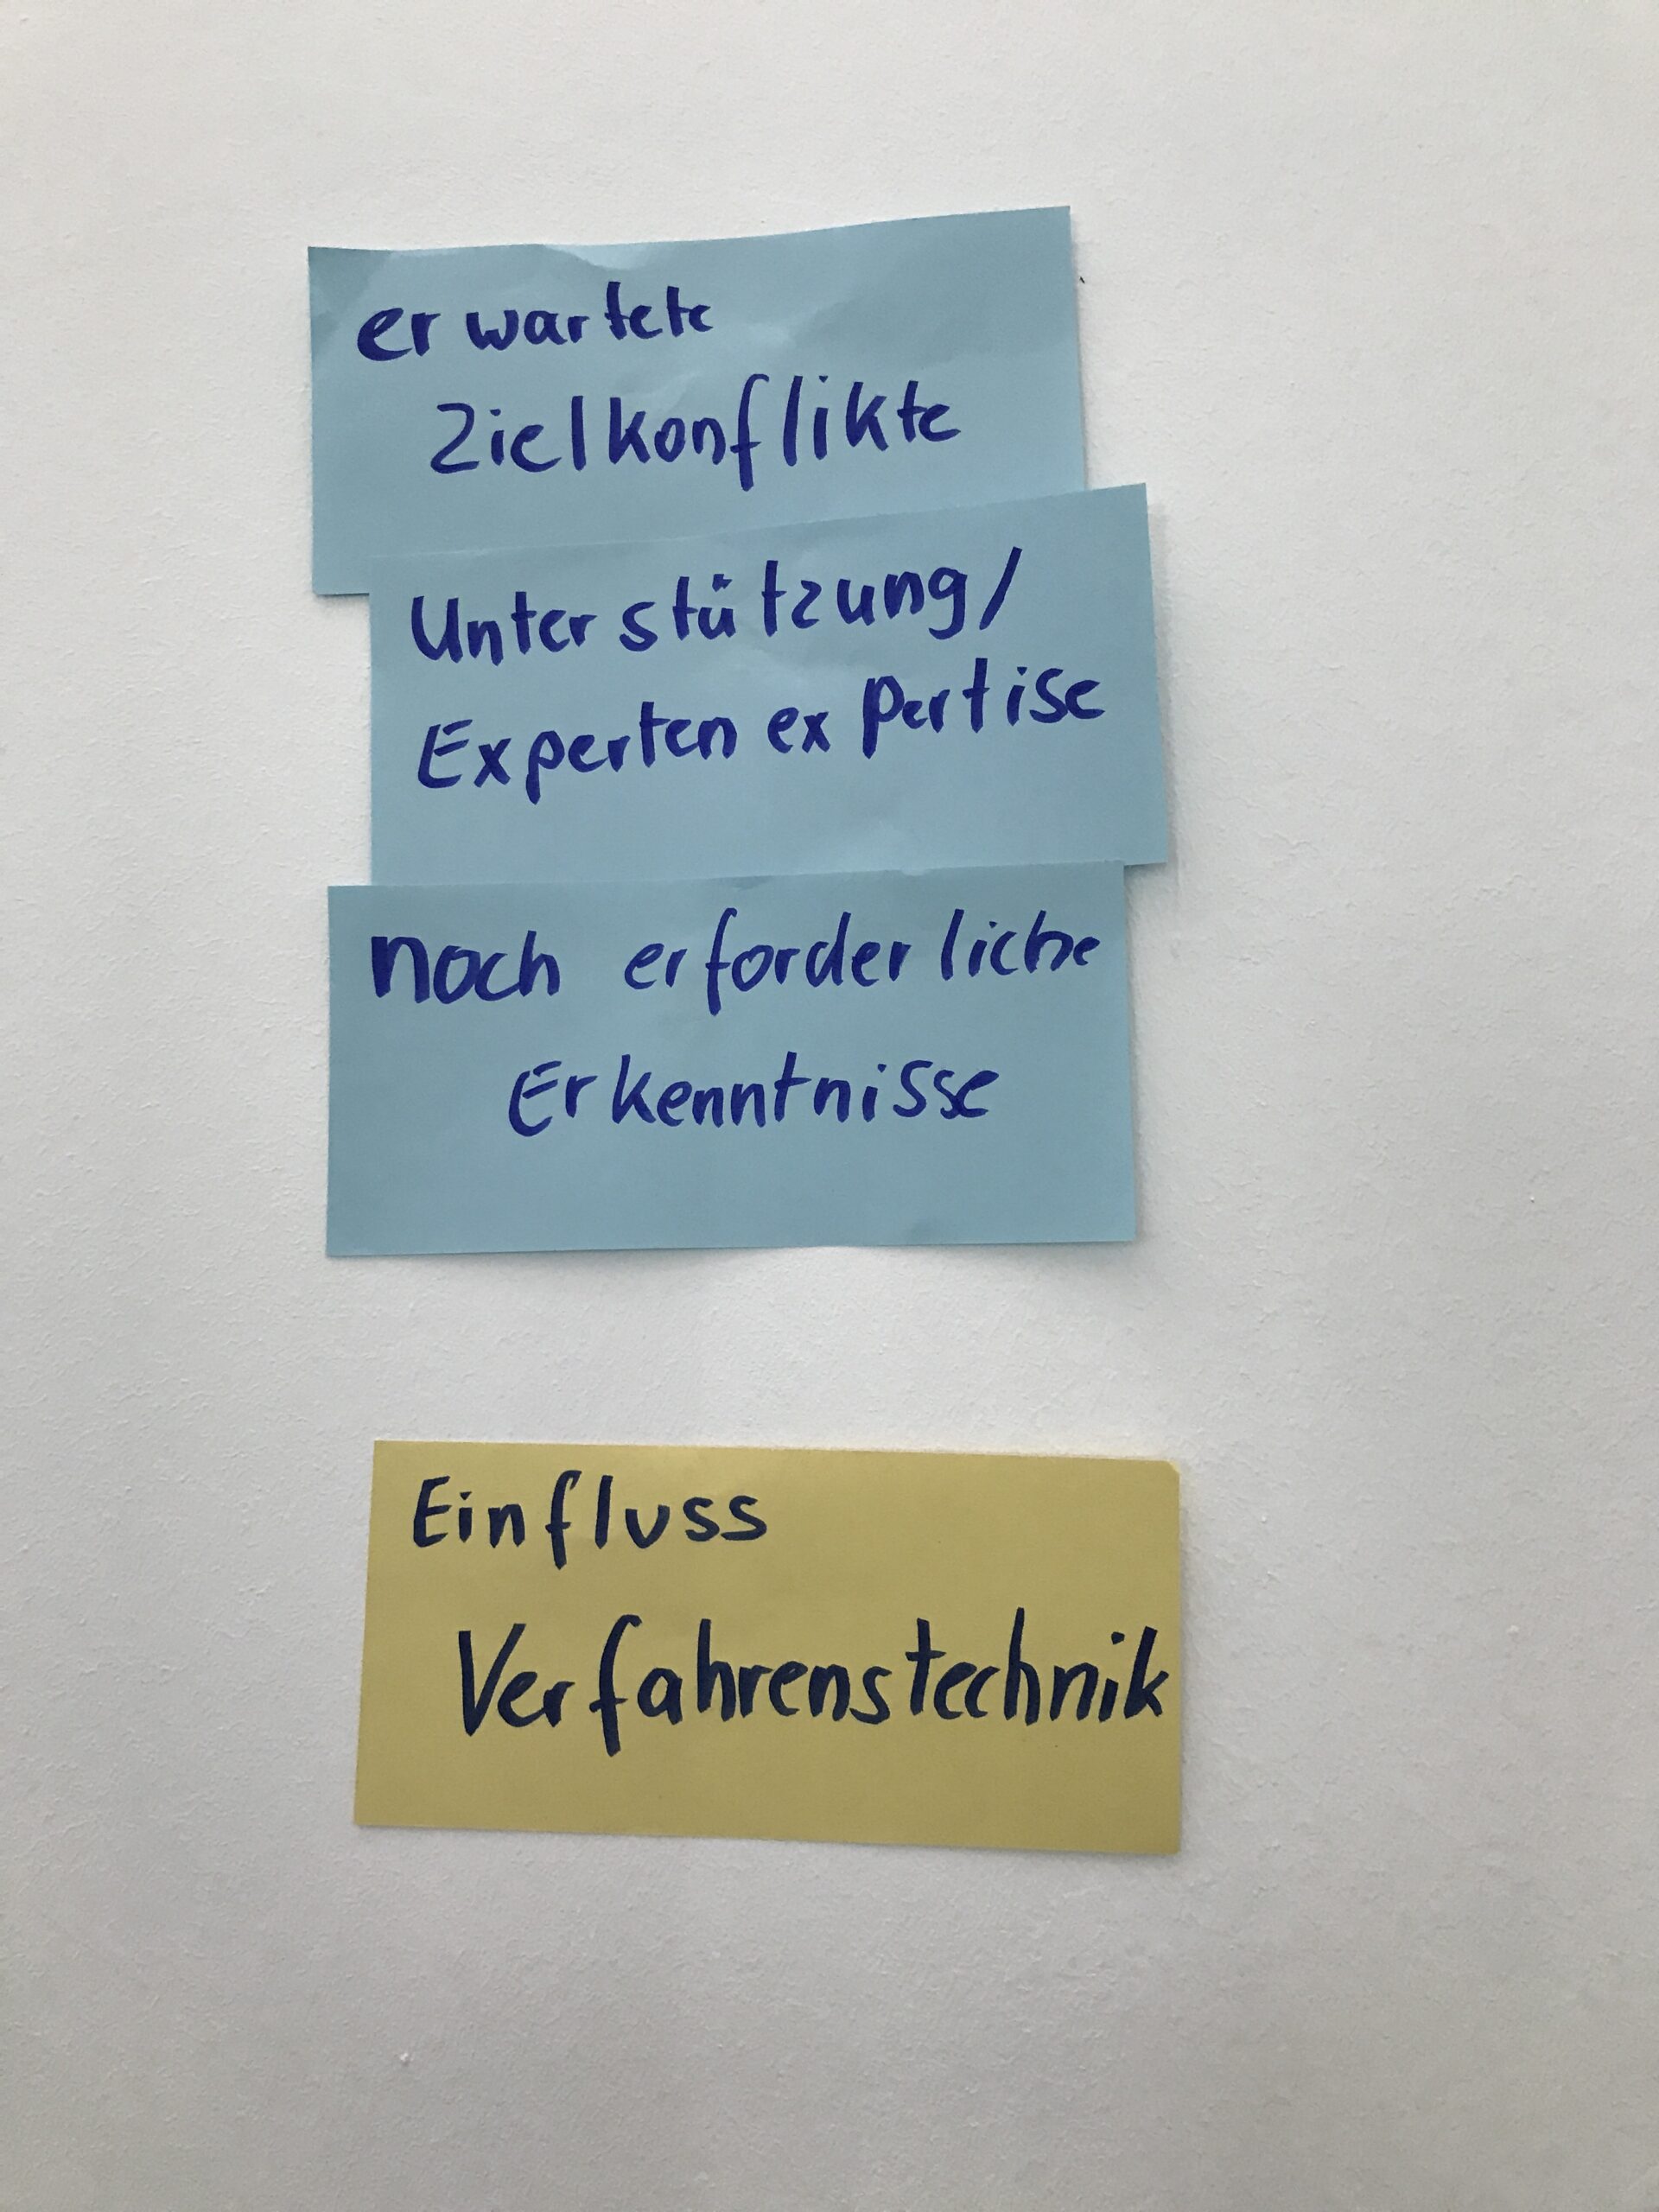 erwartete
Zielkonflikte
Unterstützung/
Expertenexpertise
noch erforderliche
Erkenntnisse
Einfluss
Verfahrenstechnik